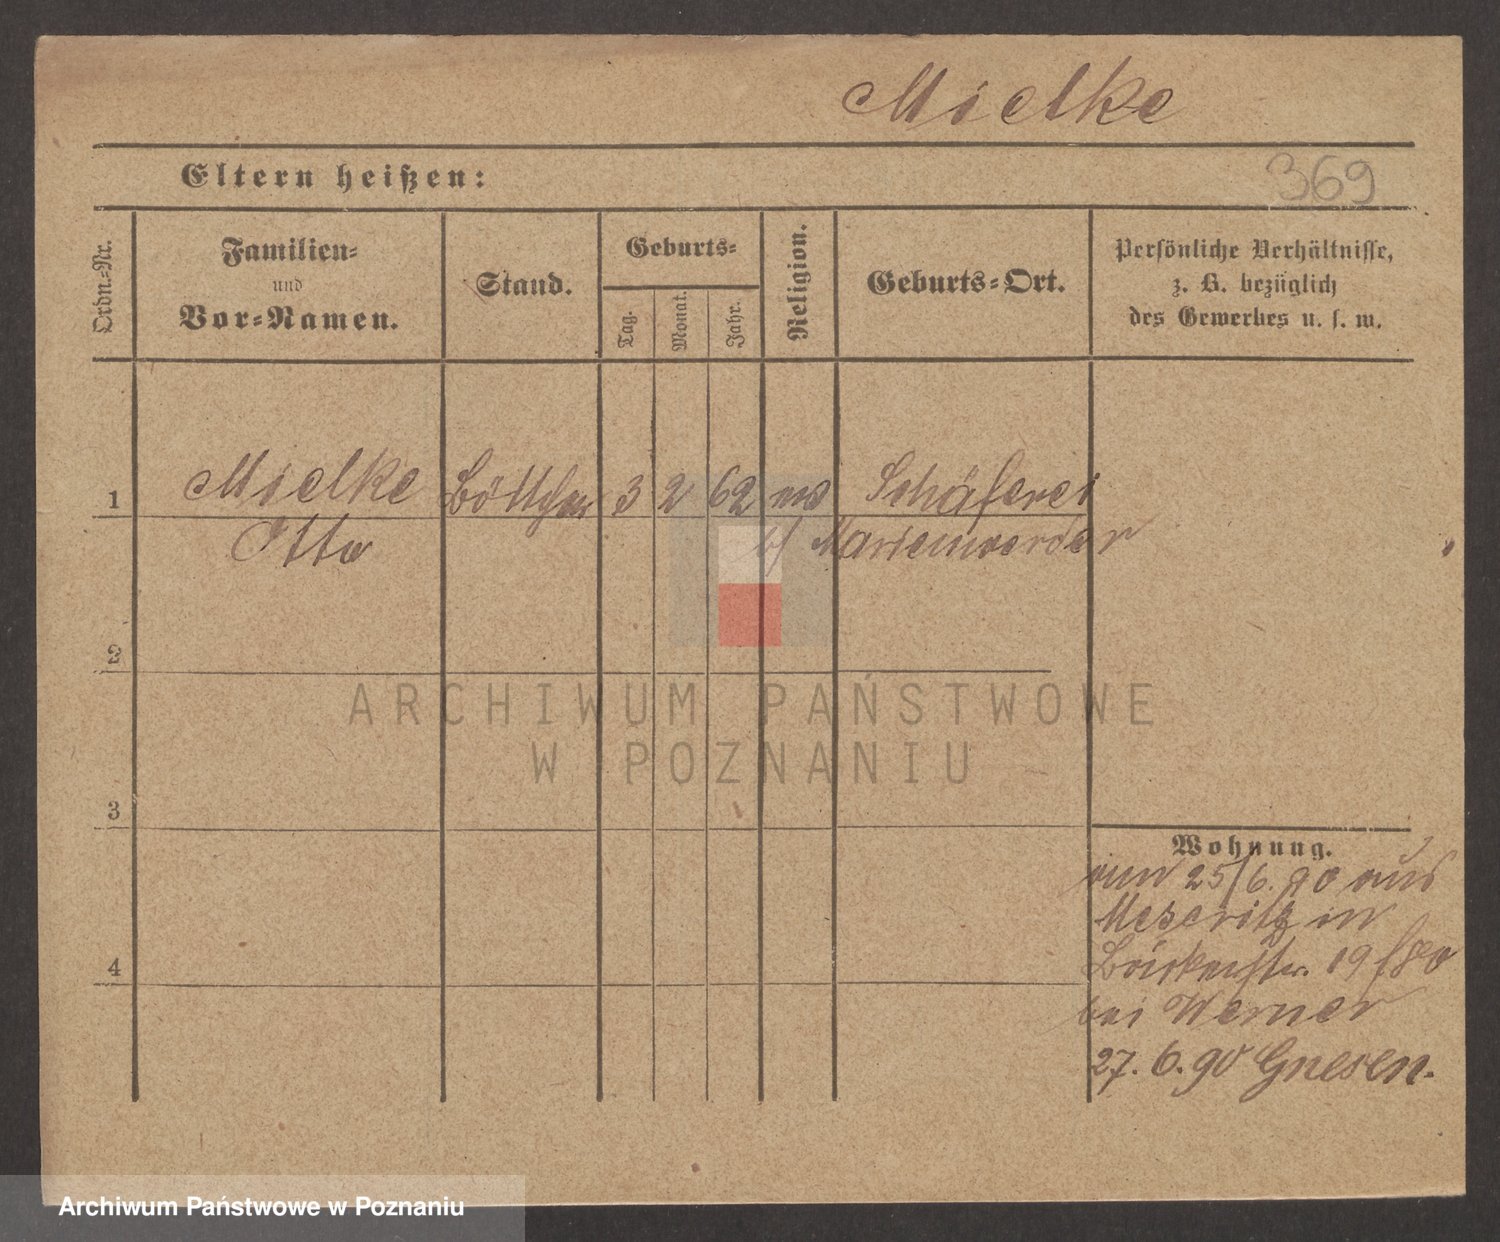 Mielke
Eltern heißen:
369
Ordn.=Nr.
Familien=
und
Vor=Namen.
Stand.
Geburts=
Tag.
Monat.
Jahr.
Religion.
Geburts=Ort.
Persönliche Verhältnisse,
z. B. bezüglich
des Gewerbes u. s. w.
1 Mielke Böttcher 3 2 62 Schäferei
Otto b/ Marienwerder
2
3
4
ARCHIWUM PAŃSTWOWE
W POZNANIU
Wohnung.
25/6. 90 aus
Meseritz in
Bäckerstr. 19
bei Werner
27. 6. 90 Gnesen.
Archiwum Państwowe w Poznaniu